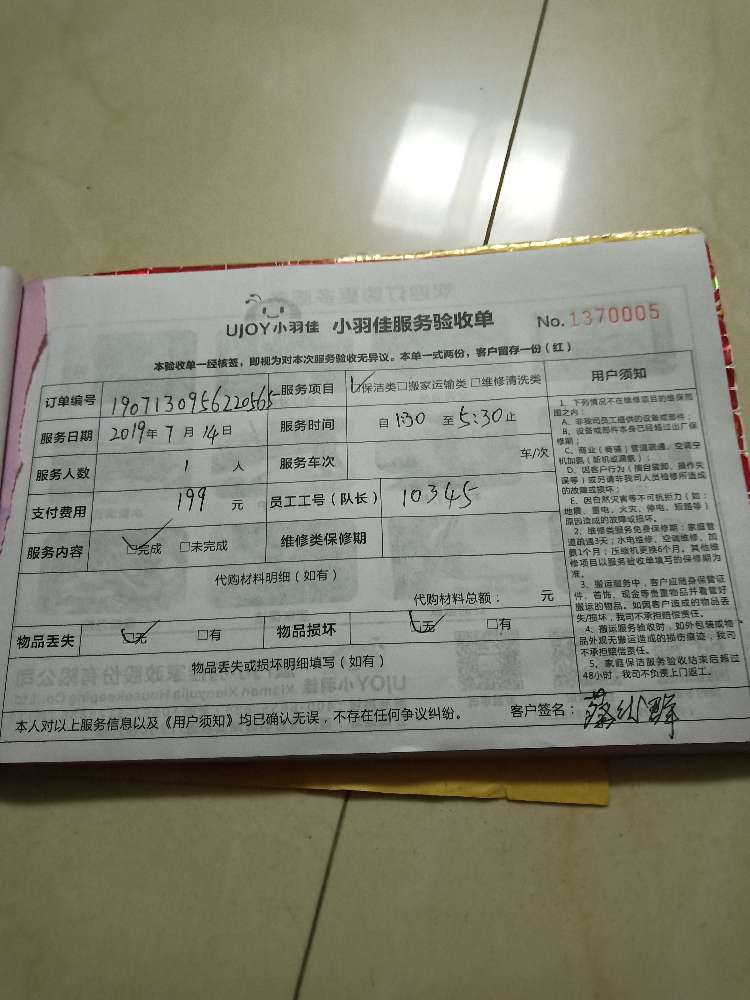 UJOY小羽佳 小羽佳服务验收单 No.1370005
本验收单一经核签，即视为对本次服务验收无异议。本单一式两份，客户留存一份（红）
订单编号 1907130956220565 服务项目 ☑保洁类□搬家运输类□维修清洗类
服务日期 2019年7月14日 服务时间 自1:30至5:30止
服务人数 1人 服务车次 车/次
支付费用 199元 员工工号（队长） 10345
服务内容 ☑完成 □未完成 维修类保修期
代购材料明细（如有）
代购材料总额： 元
物品丢失 ☑无 □有 物品损坏 ☑无 □有
物品丢失或损坏明细填写（如有）
本人对以上服务信息以及《用户须知》均已确认无误，不存在任何争议纠纷。 客户签名：
用户须知
1、下列情况不在维修项目的维保范
围之内：
A、非我司员工提供的设备或部件；
B、设备或部件本身已经超过出厂保
修期；
C、商业（店铺）管道疏通、空调空
机加氨（新机或漏氨）；
D、因客户行为（擅自装卸、操作失
误等）或另请非我司人员检修所造成
的故障或损坏；
E、因自然灾害等不可抗拒力（如：
地震、雷电、火灾、停电、短路等）
原因造成的故障或损坏。
2、维修类服务免费保修期：家庭管
道疏通3天；水电维修、空调维修、加
氨1个月；压缩机更换6个月。其他维
修项目以服务验收单填写的保修期为
准。
3、搬运服务中，客户应随身保管证
件、首饰、现金等贵重物品并看管好
搬运的物品。如因客户造成的物品丢
失/损坏，我司不承担赔偿责任。
4、搬运服务验收时，如外包装或物
品外观无搬运造成的损伤痕迹，我司
不承担赔偿责任。
5、家庭保洁服务验收结束后超过
48小时，我司不负责上门返工。